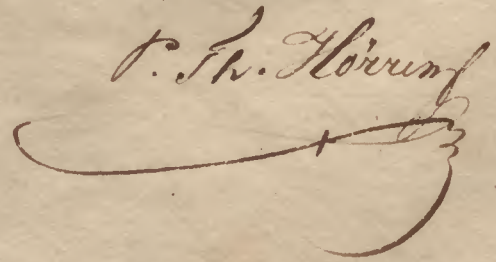 P. Th. Hørring